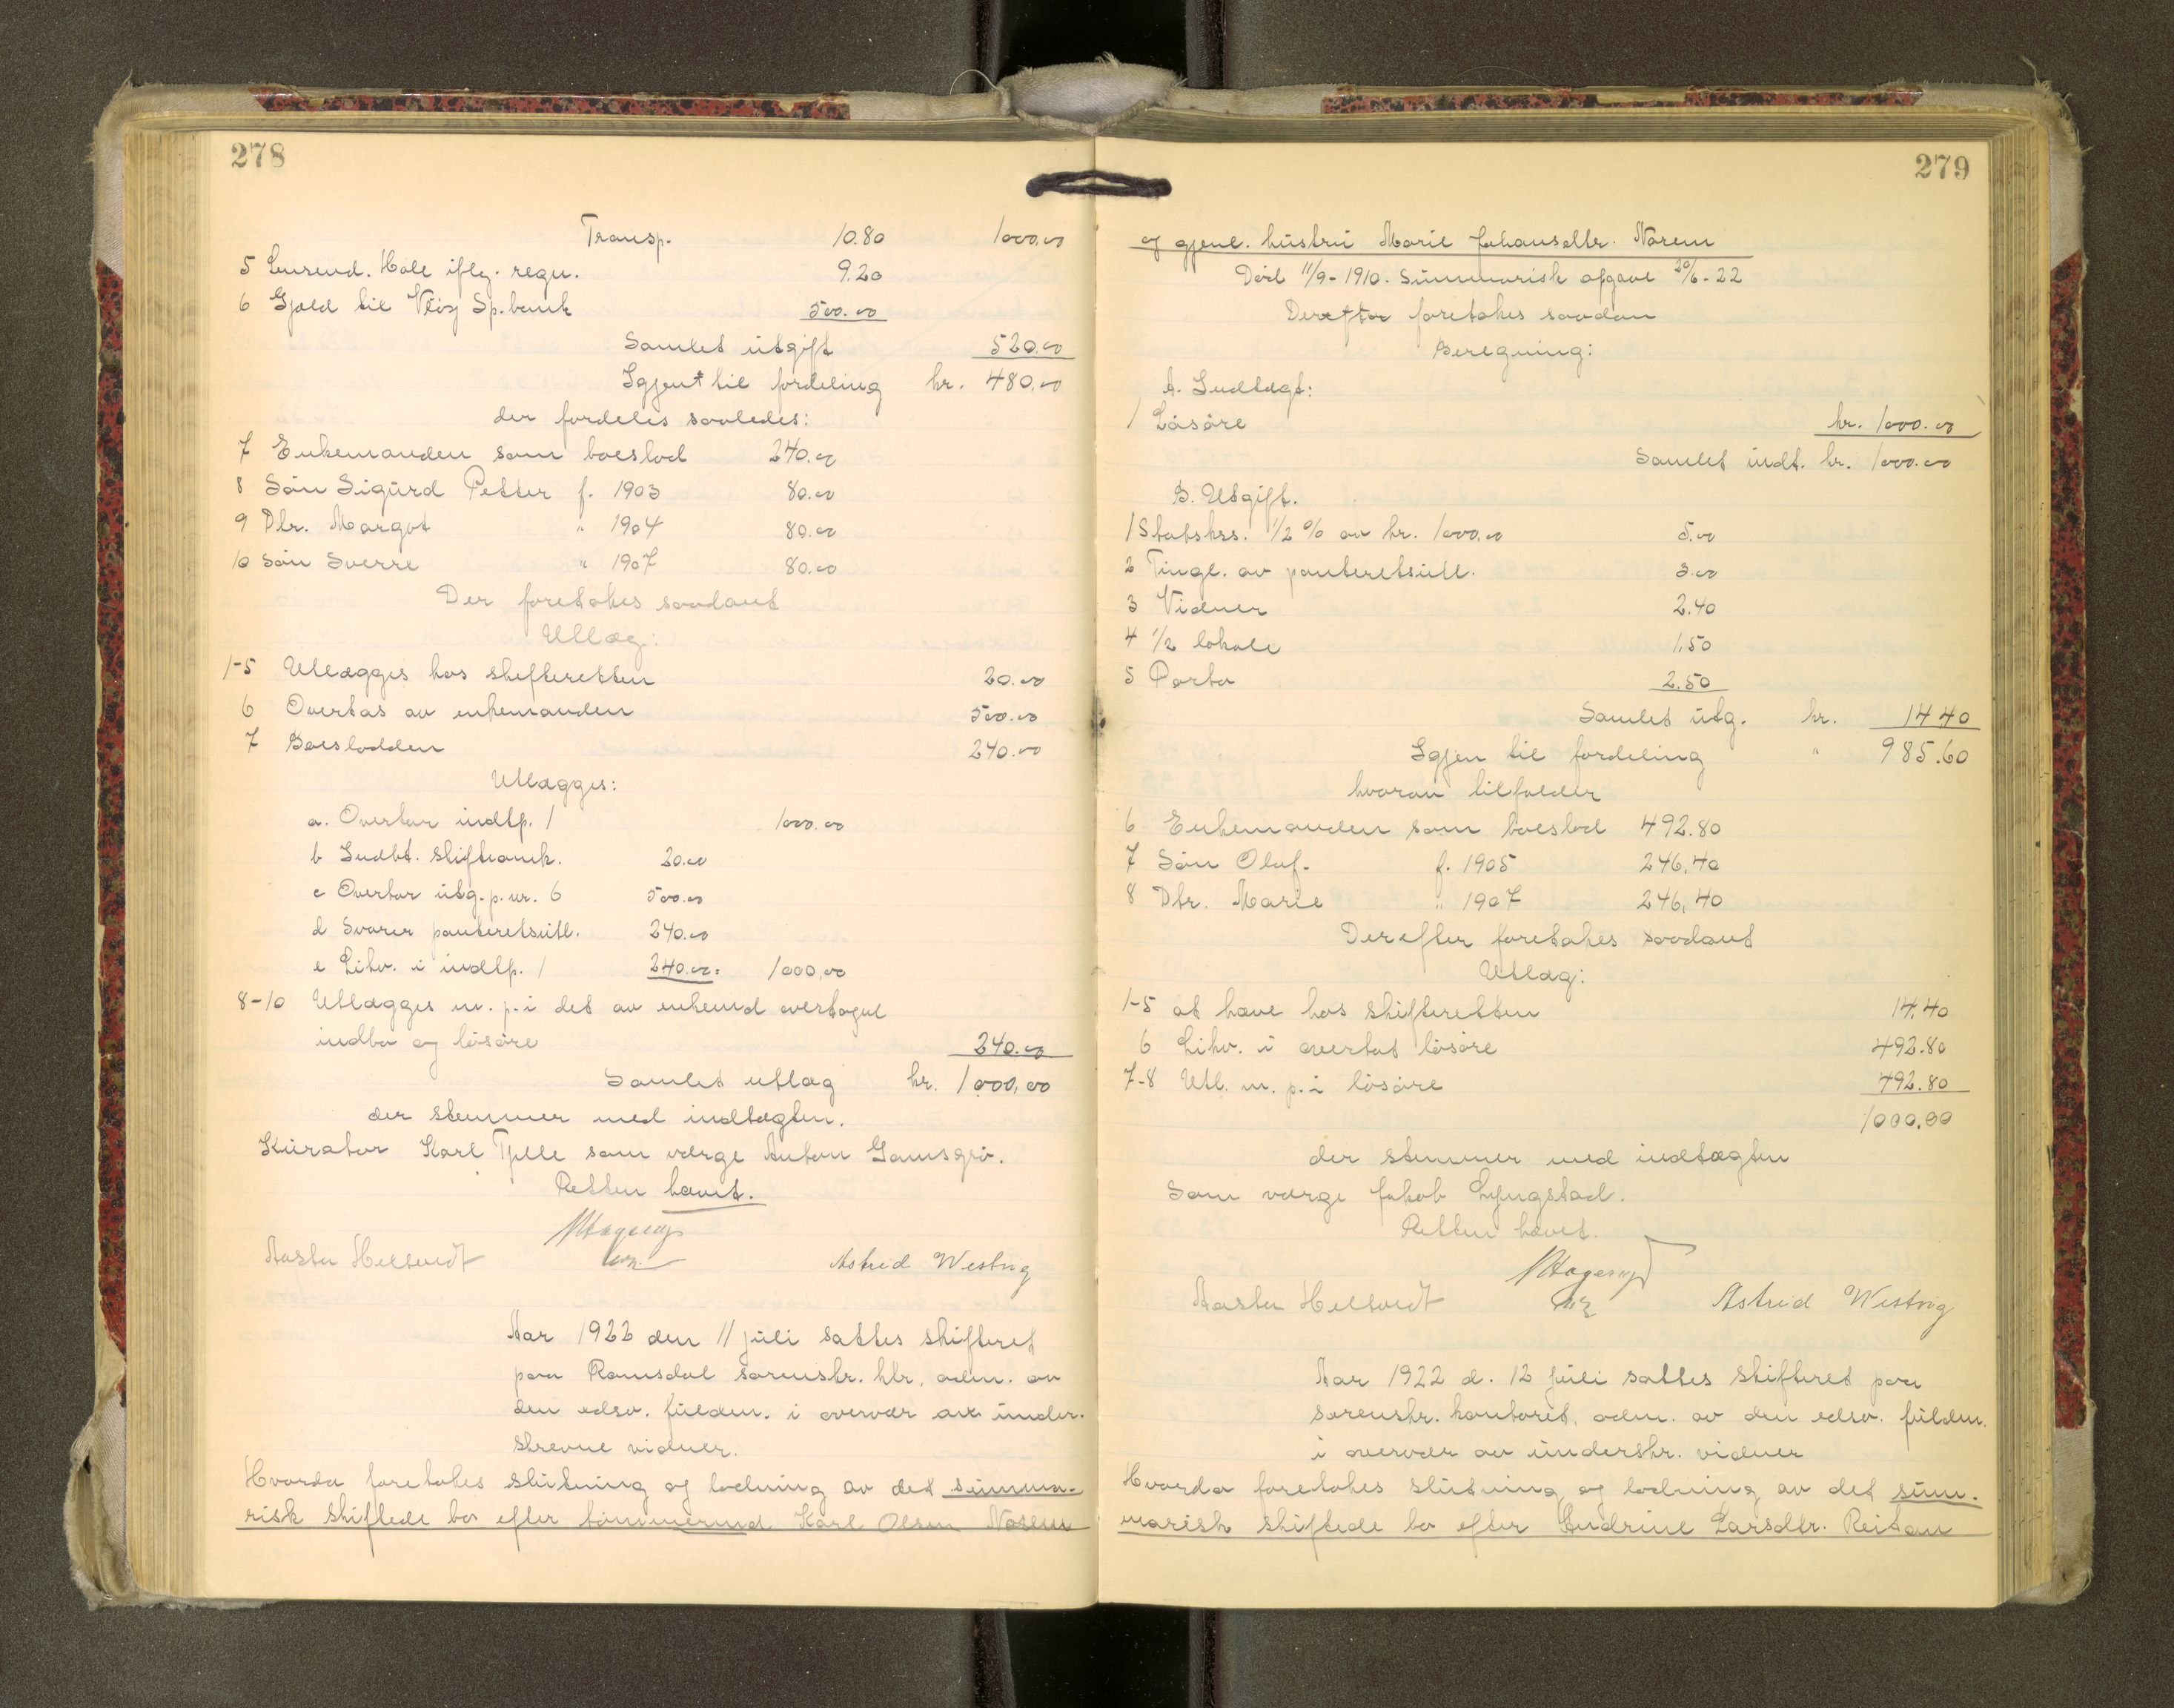 278
Transp. 10.80 1000.00
5 Lensmd. Hole iflg. regn. 9.20
6 Gjæld til Veöy Sp.bank 500.00
Samlet utgift 520.00
Igjent til fordeling kr. 480.00
der fordeles saaledes:
7 Enkemanden som boeslod 240.00
8 Sön Sigurd Petter f. 1903 80.00
9 Dtr. Margot " 1904 80.00
10 Sön Sverre " 1907 80.00
Der foretakes saadant
Utlæg:
1-5 Utlægges hos skifteretten 20.00
6 Overtas av enkemanden 500.00
7 Boeslodden 240.00
Utlægges:
a. Overtar indtp. 1 1000.00
b Indbt. skifteomk. 20.00
c Overtar utg. p. nr. 6 500.00
d Svarer panteretsutl. 240.00
e Likv. i indtp. 1 240.00 = 1000,00
8-10 Utlægges m. p. i det av enkemd overtagne
indbo og lösöre 240.00
Samlet utlæg kr. 1000,00
der stemmer med indtægten.
Kurator Karl Tjelle som værge Anton Gamsgrö.
Retten hævet.
Aasta Heltvedt Astrid Westvig
Aar 1922 den 11 juli sattes skifteret
paa Romsdal sorenskr. ktr. adm. av
den edsv. fuldm. i overvær av under-
skrevne vidner.
Hvorda foretakes slutning og lodning av det summa-
risk skiftede bo efter tömmermd. Karl Olsen Norem
279
og gjenl. hustru Marie Johansdtr. Norem
Död 11/9 - 1910. Summarisk opgave 20/6 - 22
Derefter foretakes saadan
Beregning:
A. Indtægt:
1 Lösöre kr. 1000.00
Samlet indt. kr. 1000.00
B. Utgift.
1 Statskss. 1/2 % av kr. 1000.00 5.00
2 Tingl. av panteretsutl. 3.00
3 Vidner 2.40
4 1/2 lokale 1,50
5 Porto 2.50
Samlet utg. kr. 14 40
Igjen til fordeling " 985.60
hvorav tilfalder
6 Enkemanden som boeslod 492.80
7 Sön Olaf. f. 1905 246,40
8 Dtr. Marie " 1907 246,40
Derefter foretakes saadant
Utlæg:
1-5 at hæve hos skifteretten 14.40
6 Likv. i overtat lösöre 492.80
7-8 Utl. m. p. i lösöre 492.80
1000,00
der stemmer med indtægten
Som værge Jakob Lyngstad.
Retten hævet.
Aasta Heltvedt Astrid Westvig
Aar 1922 d. 12 juli sattes skifteret paa
sorenskr. kontoret, adm. av den edsv. fuldm.
i overvær av underskr. vidner
Hvorda foretakes slutning og lodning av det sum-
marisk skiftede bo efter Andrine Larsdtr. Reitan